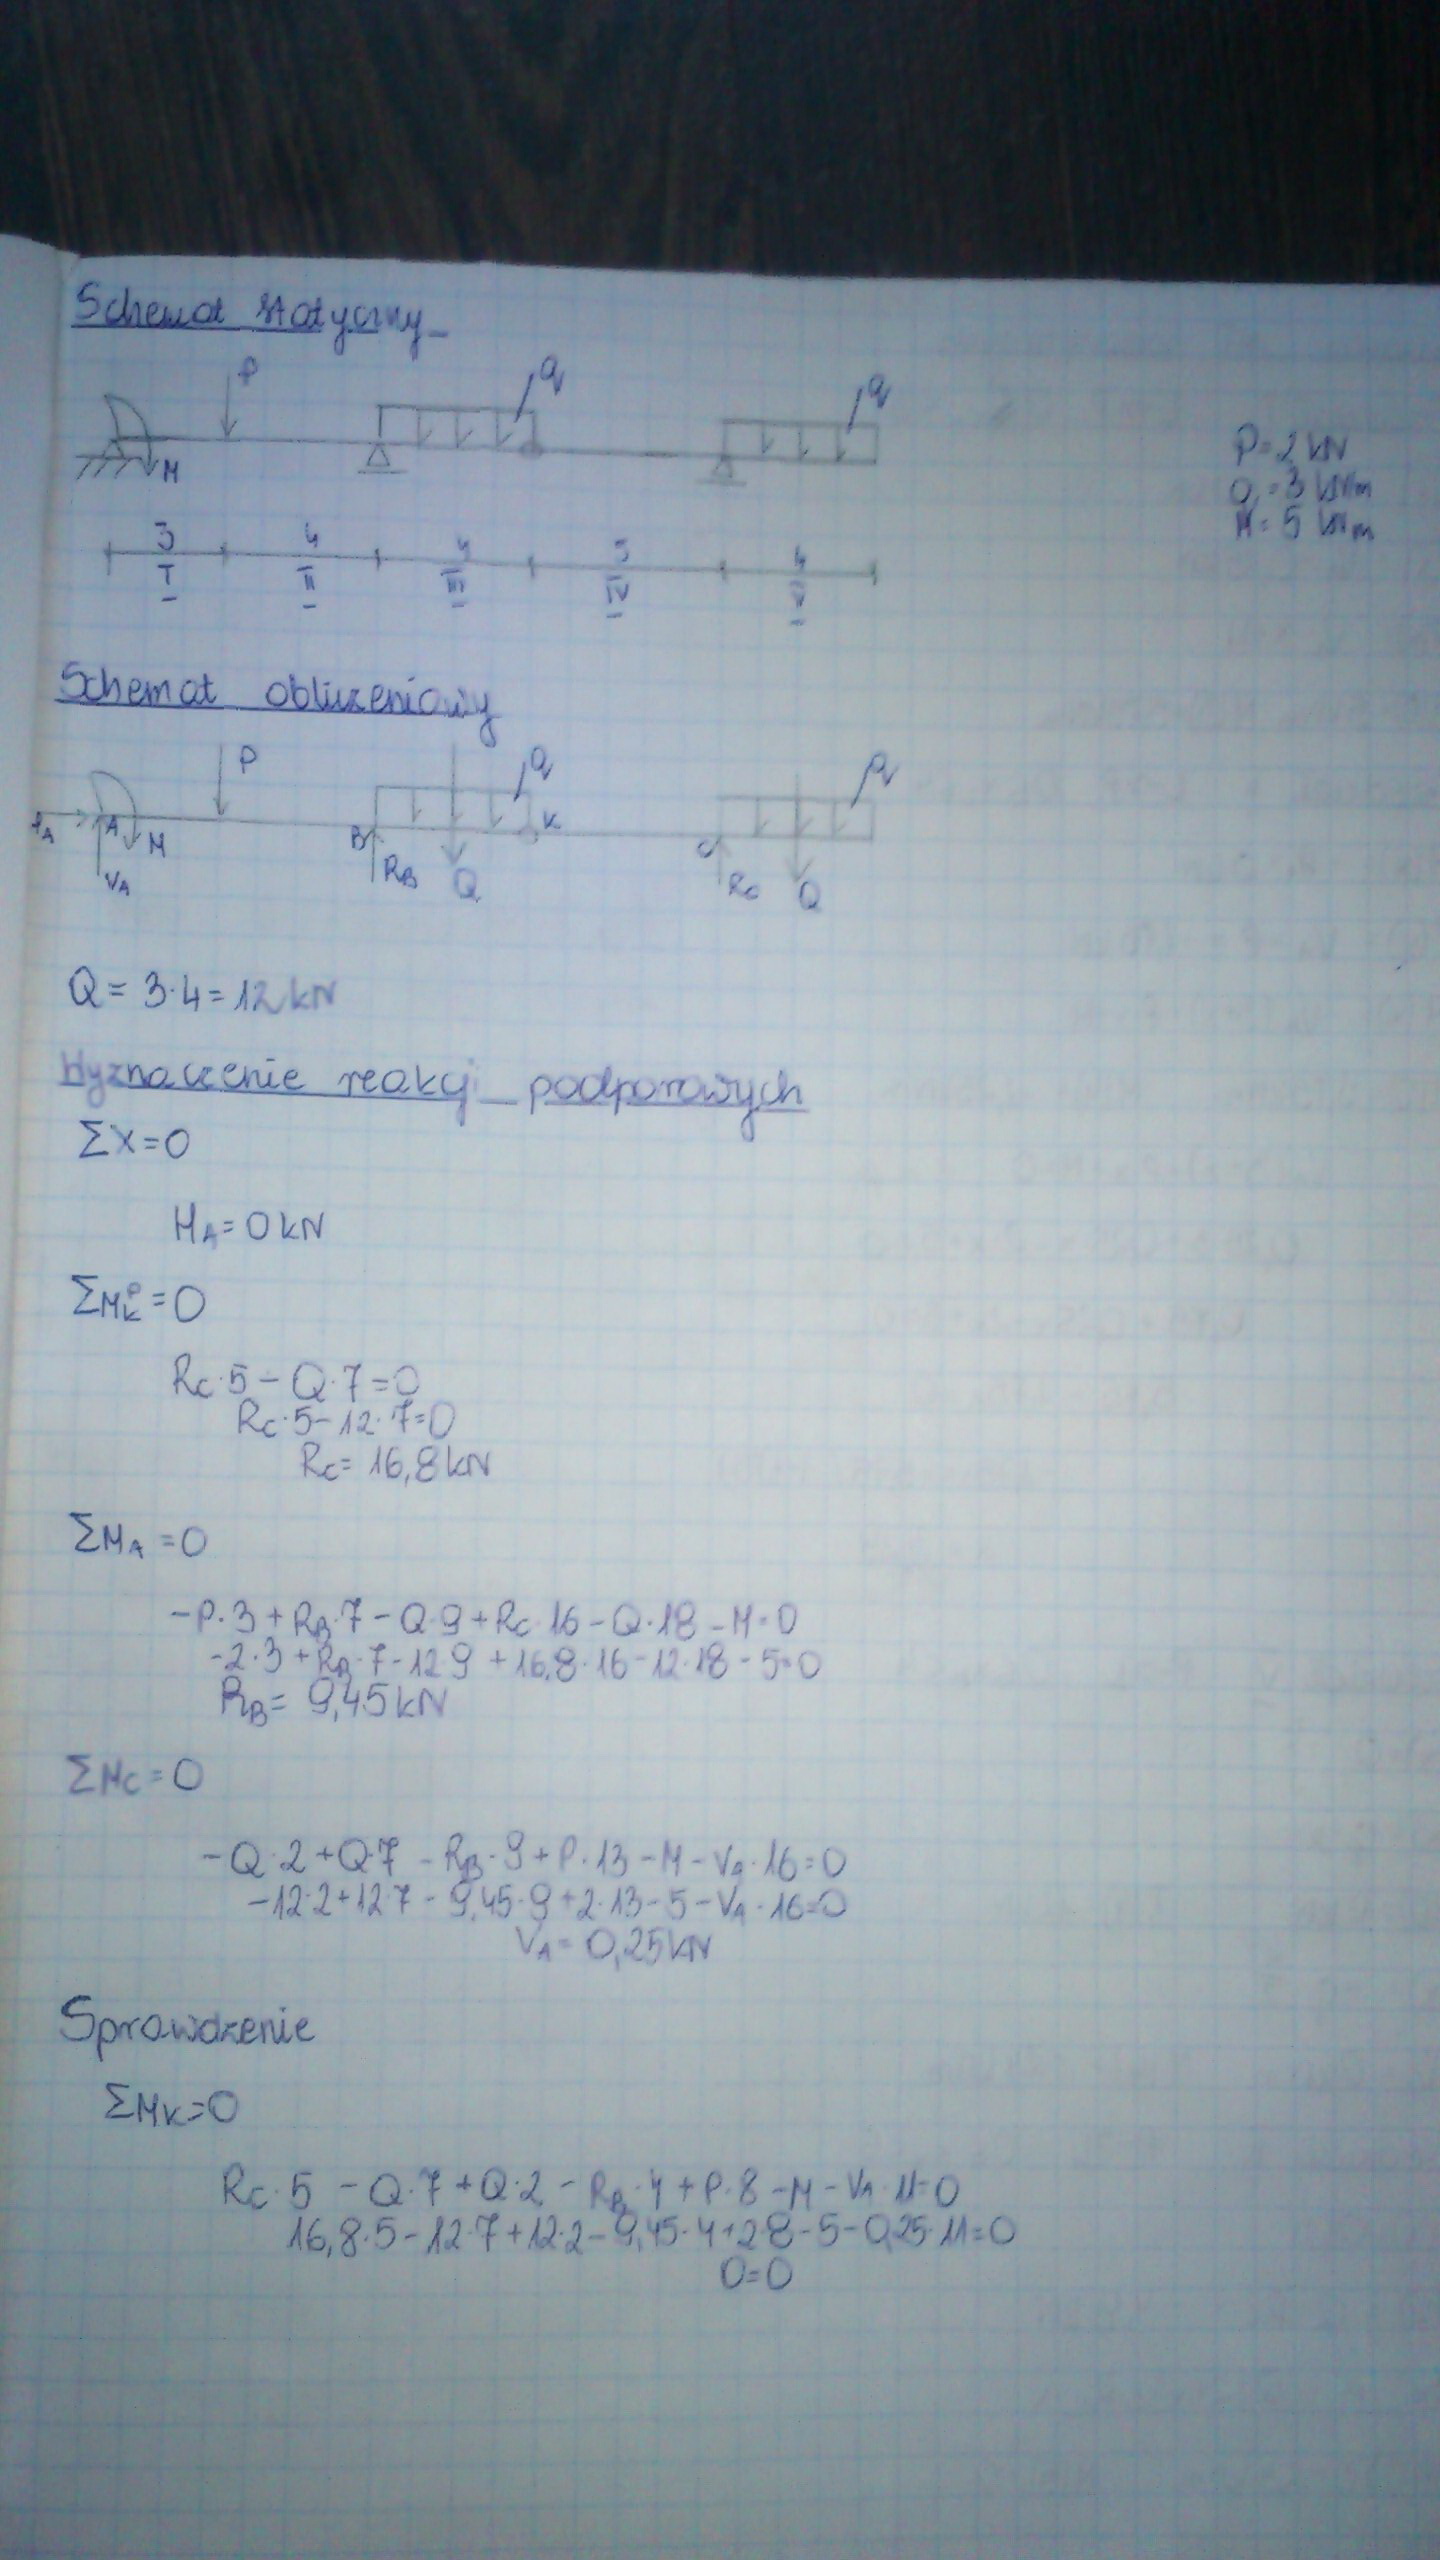 Schemat statyczny
P
q
q
M
P = 2 kN
q = 3 kN/m
M = 5 kNm
3 4 4 5 4
I II III IV V
Schemat obliczeniowy
P
q
q
HA A M B K C
VA RB Q RC Q
Q = 3·4 = 12 kN
Wyznaczenie reakcji podporowych
ΣX=0
HA = 0 kN
ΣMKP = 0
RC·5 - Q·7 = 0
RC·5 - 12·7 = 0
RC = 16,8 kN
ΣMA = 0
-P·3 + RB·7 - Q·9 + RC·16 - Q·18 - M = 0
-2·3 + RB·7 - 12·9 + 16,8·16 - 12·18 - 5 = 0
RB = 9,45 kN
ΣMC = 0
-Q·2 + Q·7 - RB·9 + P·13 - M - VA·16 = 0
-12·2 + 12·7 - 9,45·9 + 2·13 - 5 - VA·16 = 0
VA = 0,25 kN
Sprawdzenie
ΣMK = 0
RC·5 - Q·7 + Q·2 - RB·4 + P·8 - M - VA·11 = 0
16,8·5 - 12·7 + 12·2 - 9,45·4 + 2·8 - 5 - 0,25·11 = 0
0=0